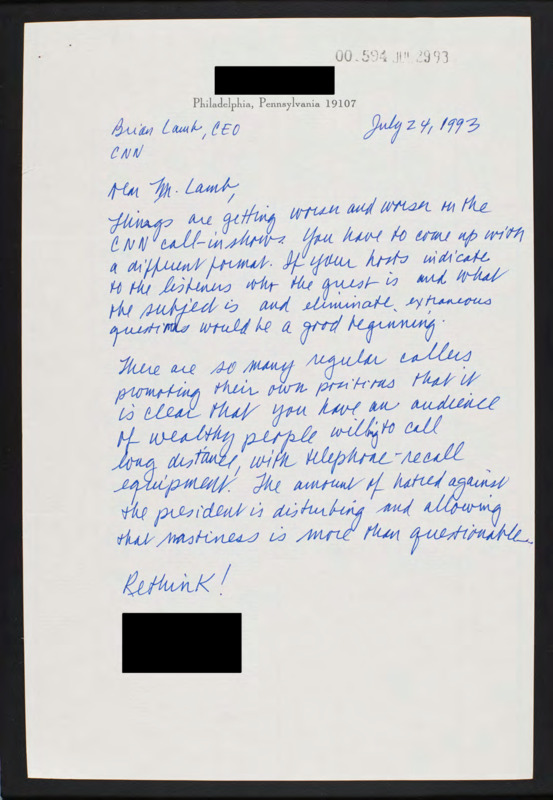 00.594 JUL 29 93
Philadelphia, Pennsylvania 19107
Brian Lamb, CEO
July 24, 1993
CNN
Dear Mr. Lamb,
Things are getting worser and worser on the
CNN call-in shows. You have to come up with
a different format. If your hosts indicate
to the listeners who the guest is and what
the subject is and eliminate extraneous
questions would be a good beginning.
There are so many regular callers
promoting their own positions that it
is clear that you have an audience
of wealthy people willing to call
long distance, with telephone-recall
equipment. The amount of hatred against
the president is disturbing and allowing
that nastiness is more than questionable.
Rethink!